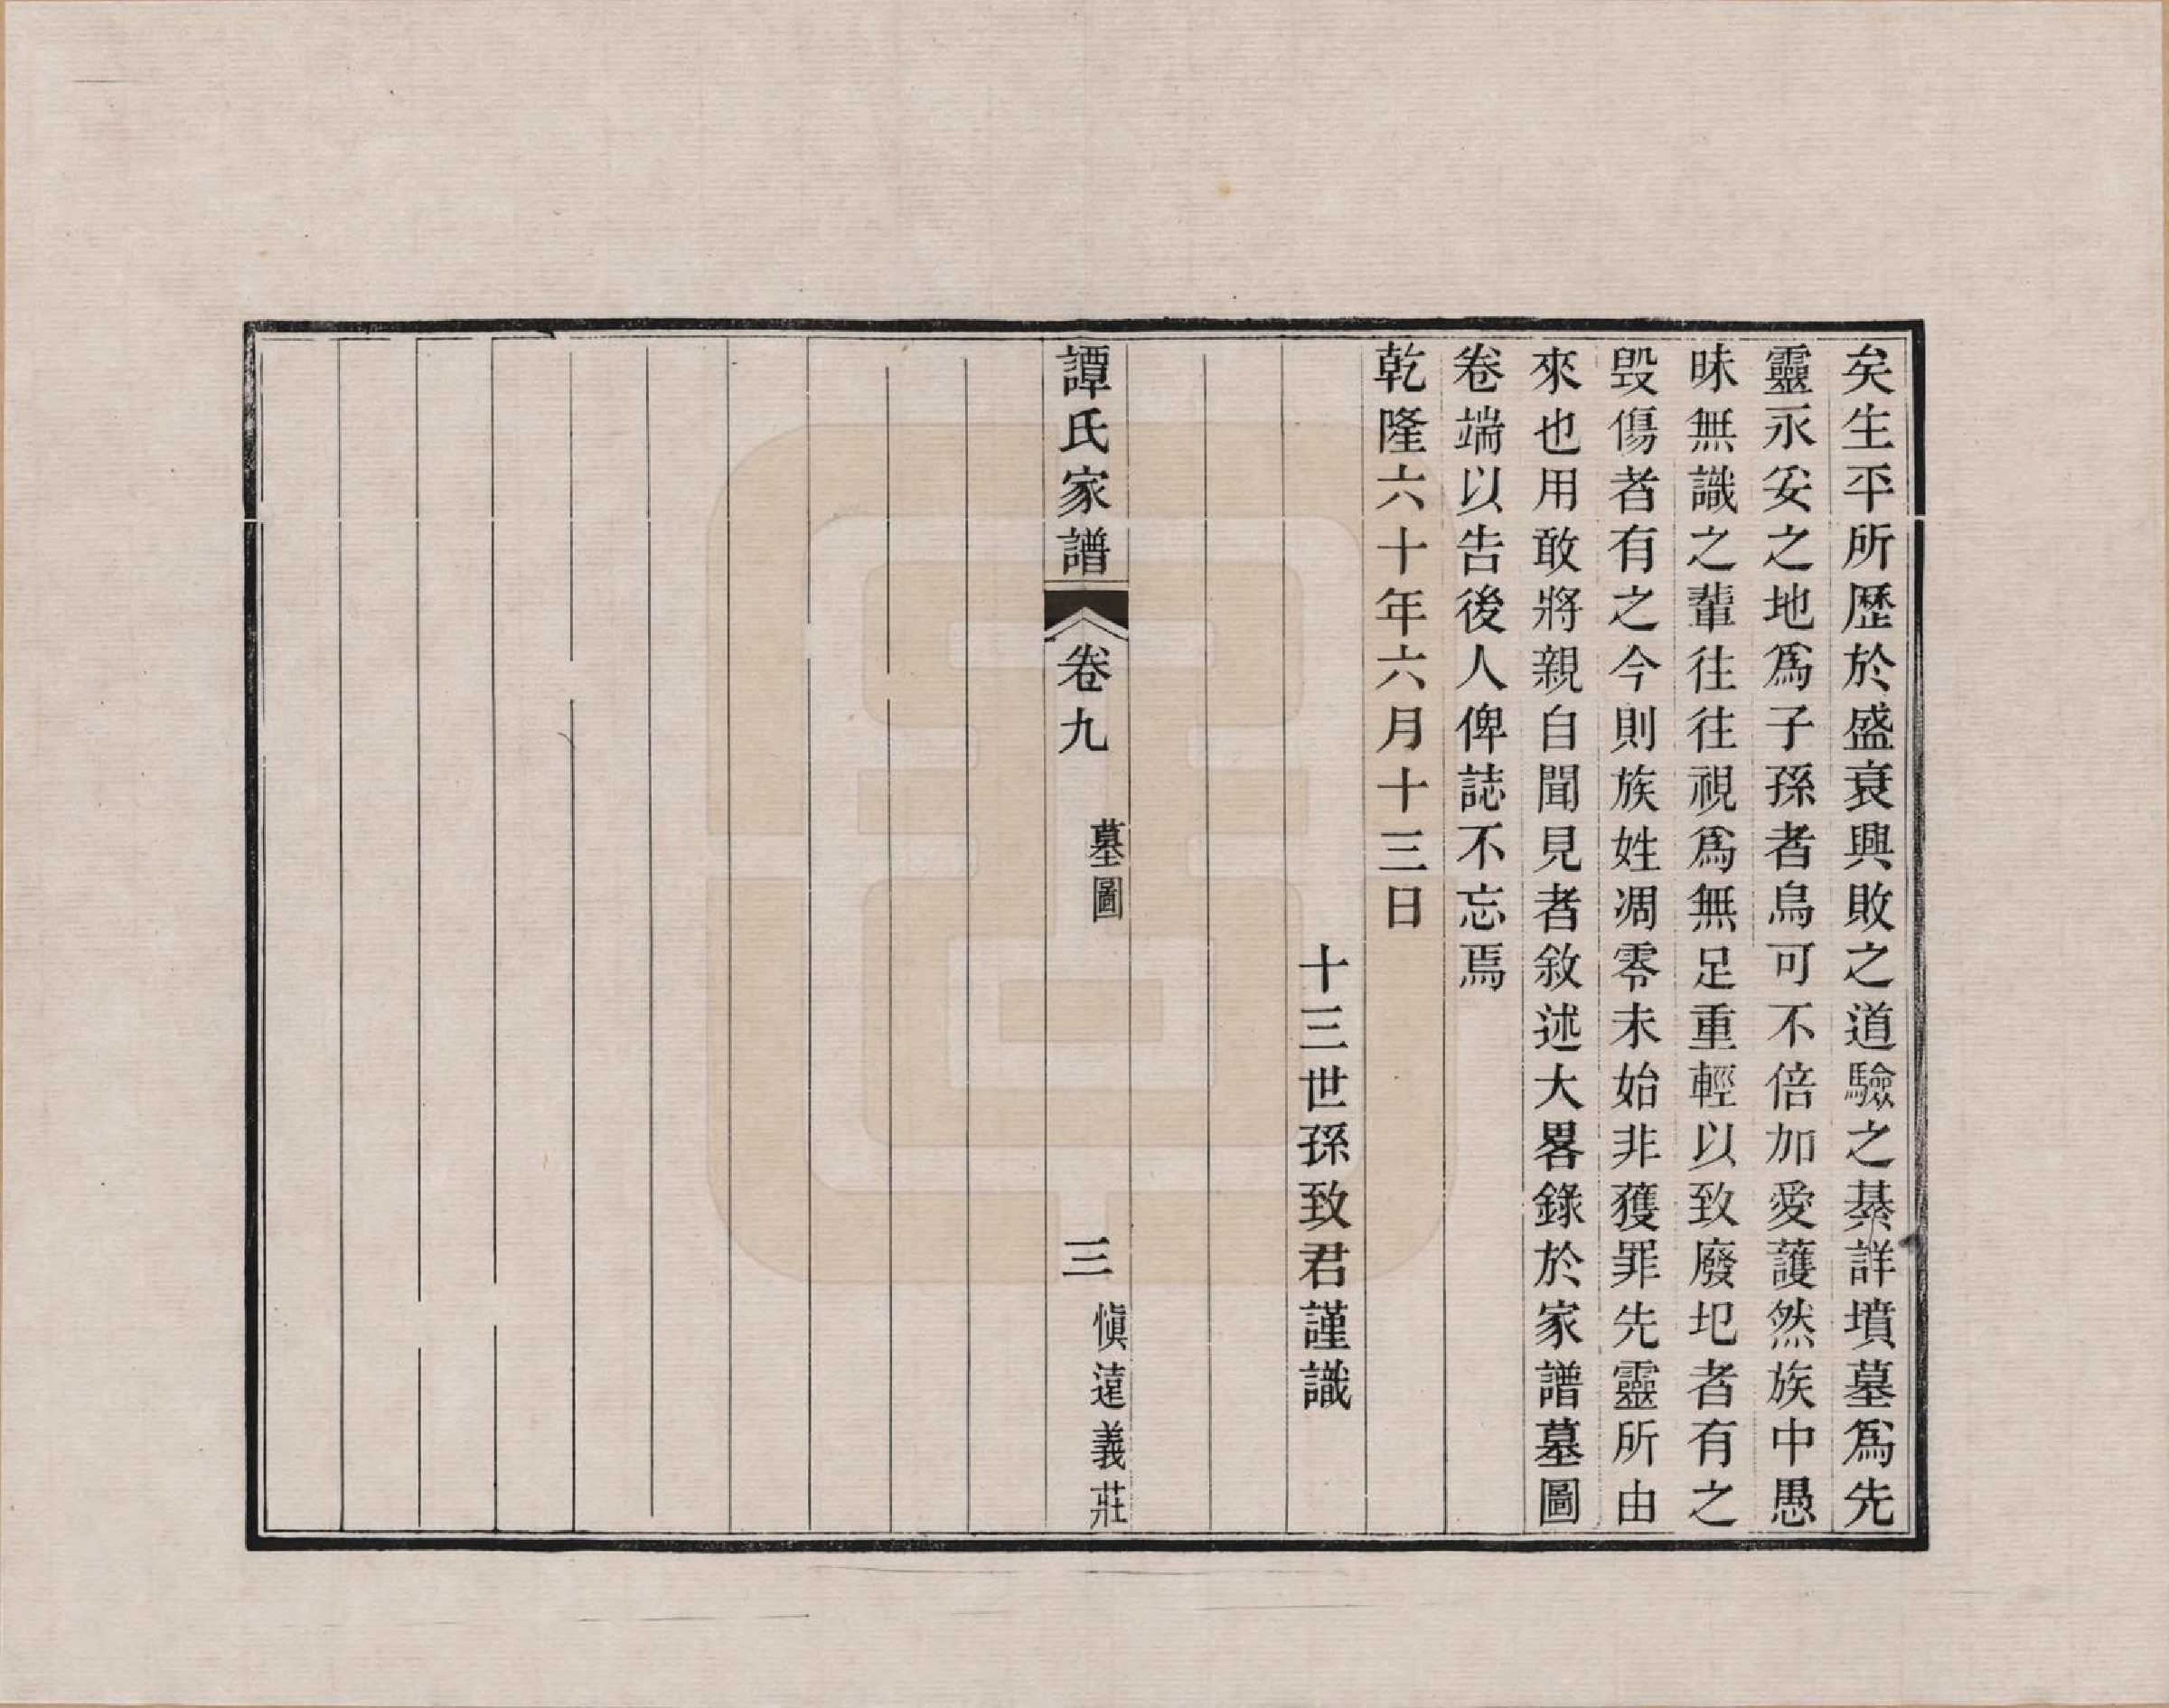 矣生平所歷於盛衰興敗之道驗之綦詳墳墓爲先
靈永安之地爲子孫者烏可不倍加愛護然族中愚
昧無識之輩往往視爲無足重輕以致廢圯者有之
毀傷者有之今則族姓凋零未始非獲罪先靈所由
來也用敢將親自聞見者敘述大畧錄於家譜墓圖
卷端以告後人俾誌不忘焉
乾隆六十年六月十三日
十三世孫致君謹識
譚氏家譜 卷九 墓圖 三 愼遠義莊